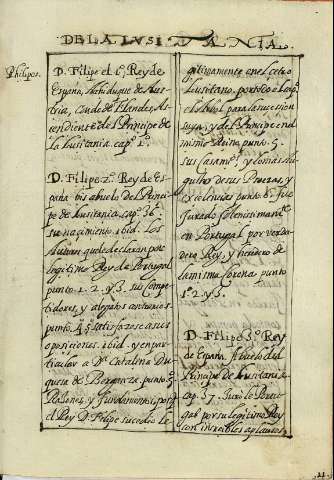 DE LA LVSITANIA.
Philipos.
D. Filipe el 1º, Rey de
España, Archiduque de Aus-
tria, Conde de Flandes, As-
cendiente del Principe de
la Lusitania. capº 1º.
D. Filipe 2º. Rey de Es-
paña bis abuelo del Princi-
pe de Lusitania. cap. 36.
su nacimiento. ibid. Los
Autores que le declararon por
legitimo Rey de Portugal
punto. 1. 2. y 3. sus Compe-
tidores, y alegatos contrarios
punto. 4. satisfazese a sus
oposiciones. ibid. y en par-
ticular a Dª Catalina Du-
quesa de Bergança. punto 5.
Razones, y fundamentos, porq
el Rey D. Filipe sucedio le-
gitimamente en el cetro
Lusitano. por todo el capº
el dicho. para la succession
suya; y del Principe en el
mismo Reino. punto. 5.
sus casamtos. y lo mas
de sus Proezas, y
excelencias punto. 6. fue
Jurado solenissimamte
en Portugal por verda-
dero Rey, y heredero de
la misma Corona. punto
1º 2. y 3.
D. Filipe 3º. Rey
de España. Abuelo del
Principe de Lusitania
cap. 37. Juró le Portu-
gal por su legitimo Rey
con increibles aplausos.